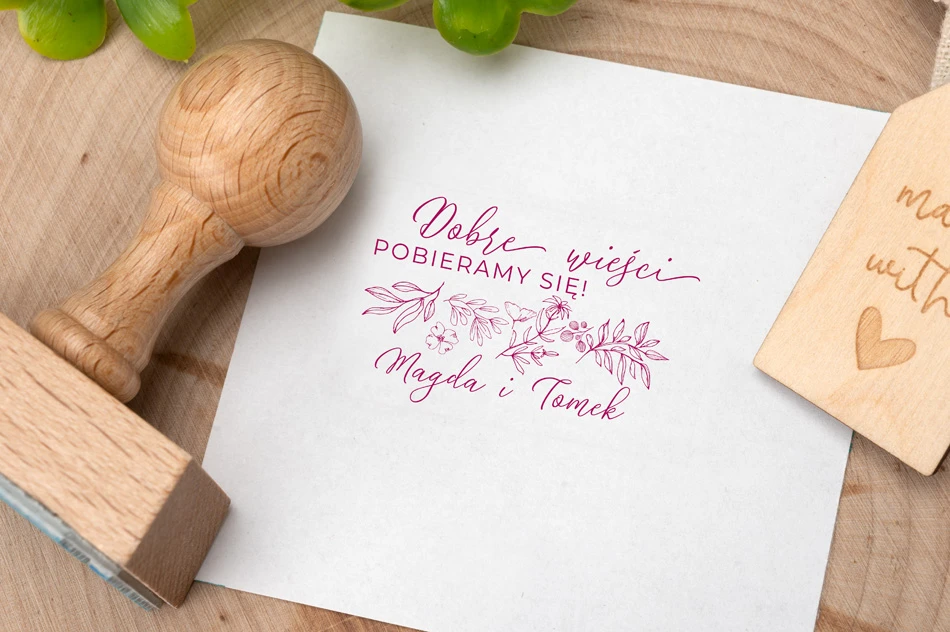 Dobre wieści
POBIERAMY SIĘ!
Magda i Tomek
with